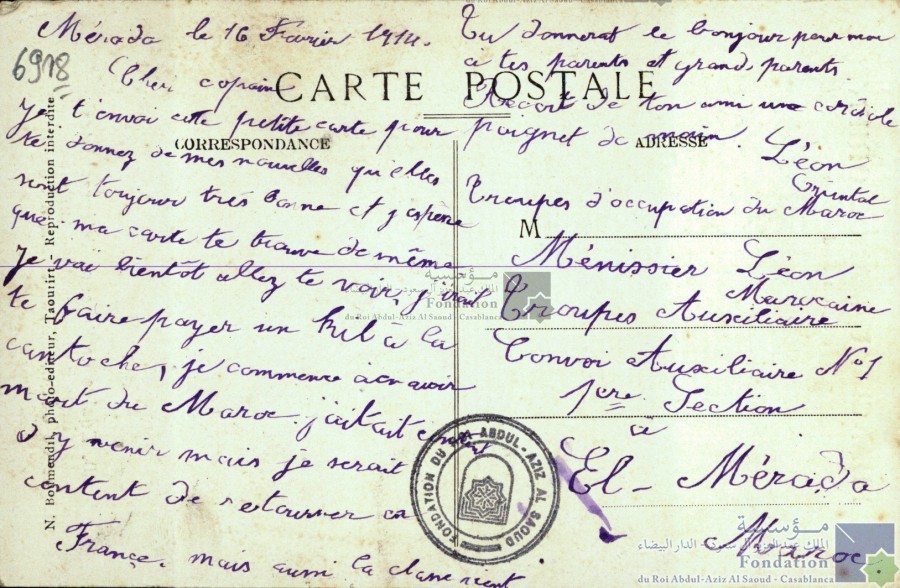 Mérada le 16 Fevrier 1914.
6918
Cher copain
Je t'envoi cette petite carte pour
te donnez de mes nouvelles qu'elles
sont toujour très bonne et j'espère
que ma carte te trouve de même
Je vai bientôt allez te voir, j'irait
te faire payer un kil à la
cantoche, je commence a en avoir
mart du Maroc j'aitait
d'y venir mais je serait
content de retourner en
France, mais aussi la classe vient
Tu donnerat le bonjour pour moi
a tes parents et grand parents.
Reçoit de ton ami une cordiale
poignet de main.
Léon
CARTE POSTALE
CORRESPONDANCE
ADRESSE
N. Boumendil, photo-editeur, Taourirt - Reproduction interdite
Troupes d'occupation du Maroc
Oriental
M
Ménissier Léon
Troupes Auxiliaire
Marocaine
Convoi Auxiliaire No 1
1ere Section
à
El-Mérada
Maroc.
FONDATION DU ROI ABDUL-AZIZ AL SAOUD
مؤسسة
الملك عبد العزيز آل سعود - الدار البيضاء
Fondation
du Roi Abdul-Aziz Al Saoud - Casablanca
مؤسسة
الملك عبد العزيز آل سعود - الدار البيضاء
Fondation
du Roi Abdul-Aziz Al Saoud - Casablanca